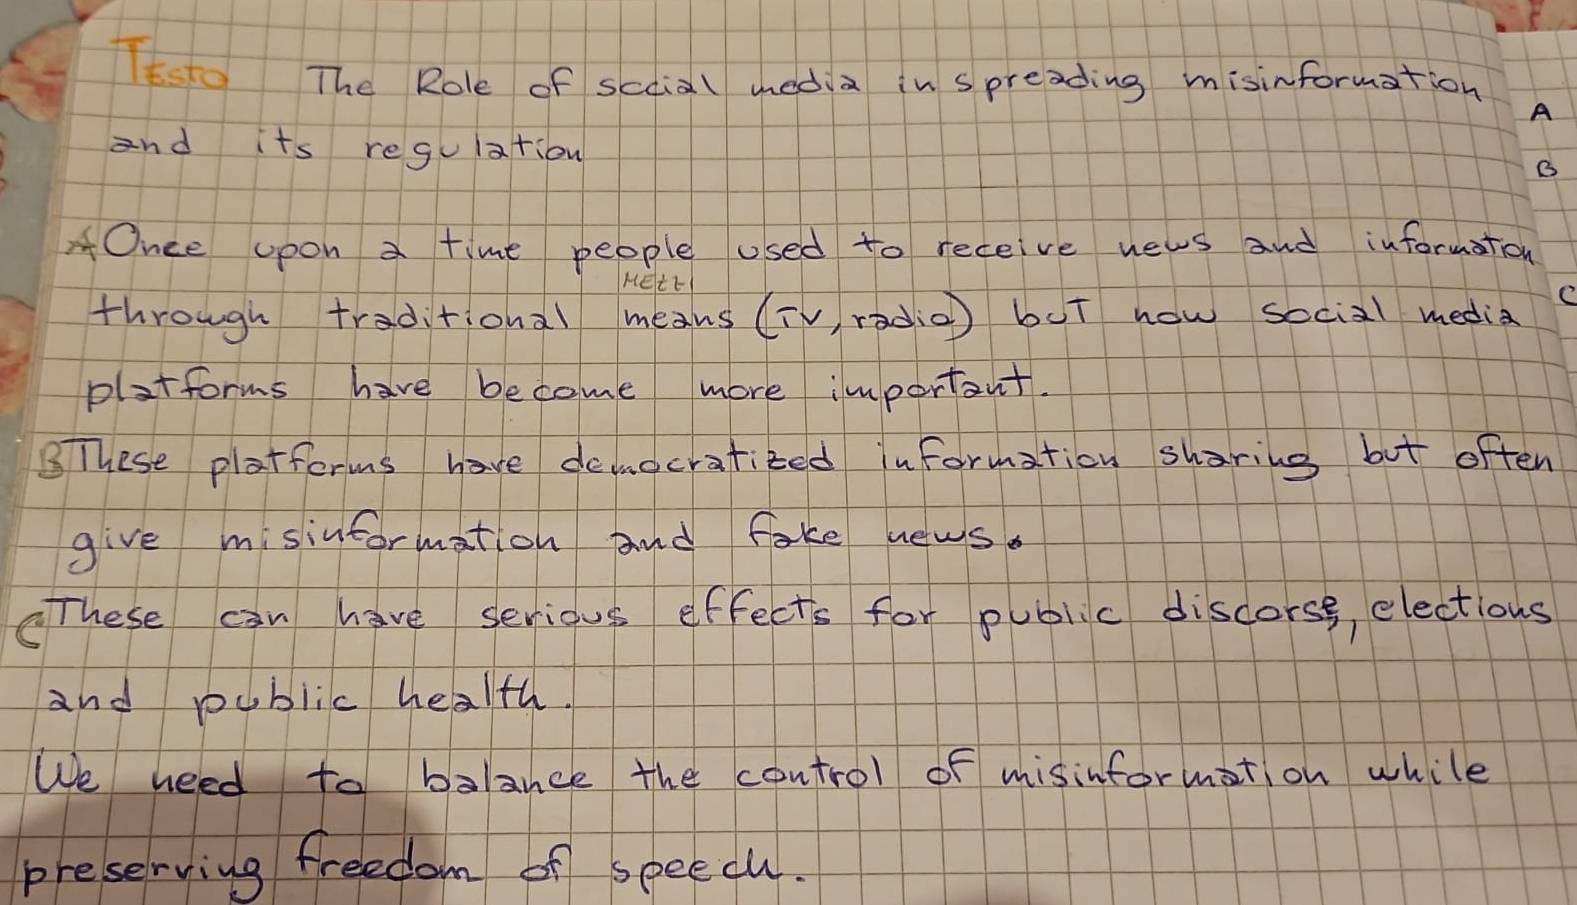 TESTO The Role of social media in spreading misinformation
and its regulation
A
B
A Once upon a time people used to receive news and information
MEZZI
through traditional means (TV, radio) but now social media
C
platforms have become more important.
B These platforms have democratized information sharing but often
give misinformation and fake news.
C These can have serious effects for public discorse, elections
and public health.
We need to balance the control of misinformation while
preserving freedom of speech.